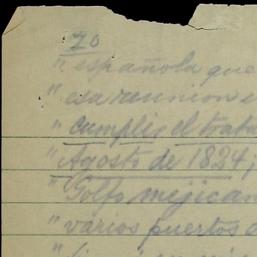 70
" española que
" esa reunion e
" cumplio el traba
" Agosto de 1824;
" Golfo mejican
" varios puertos d